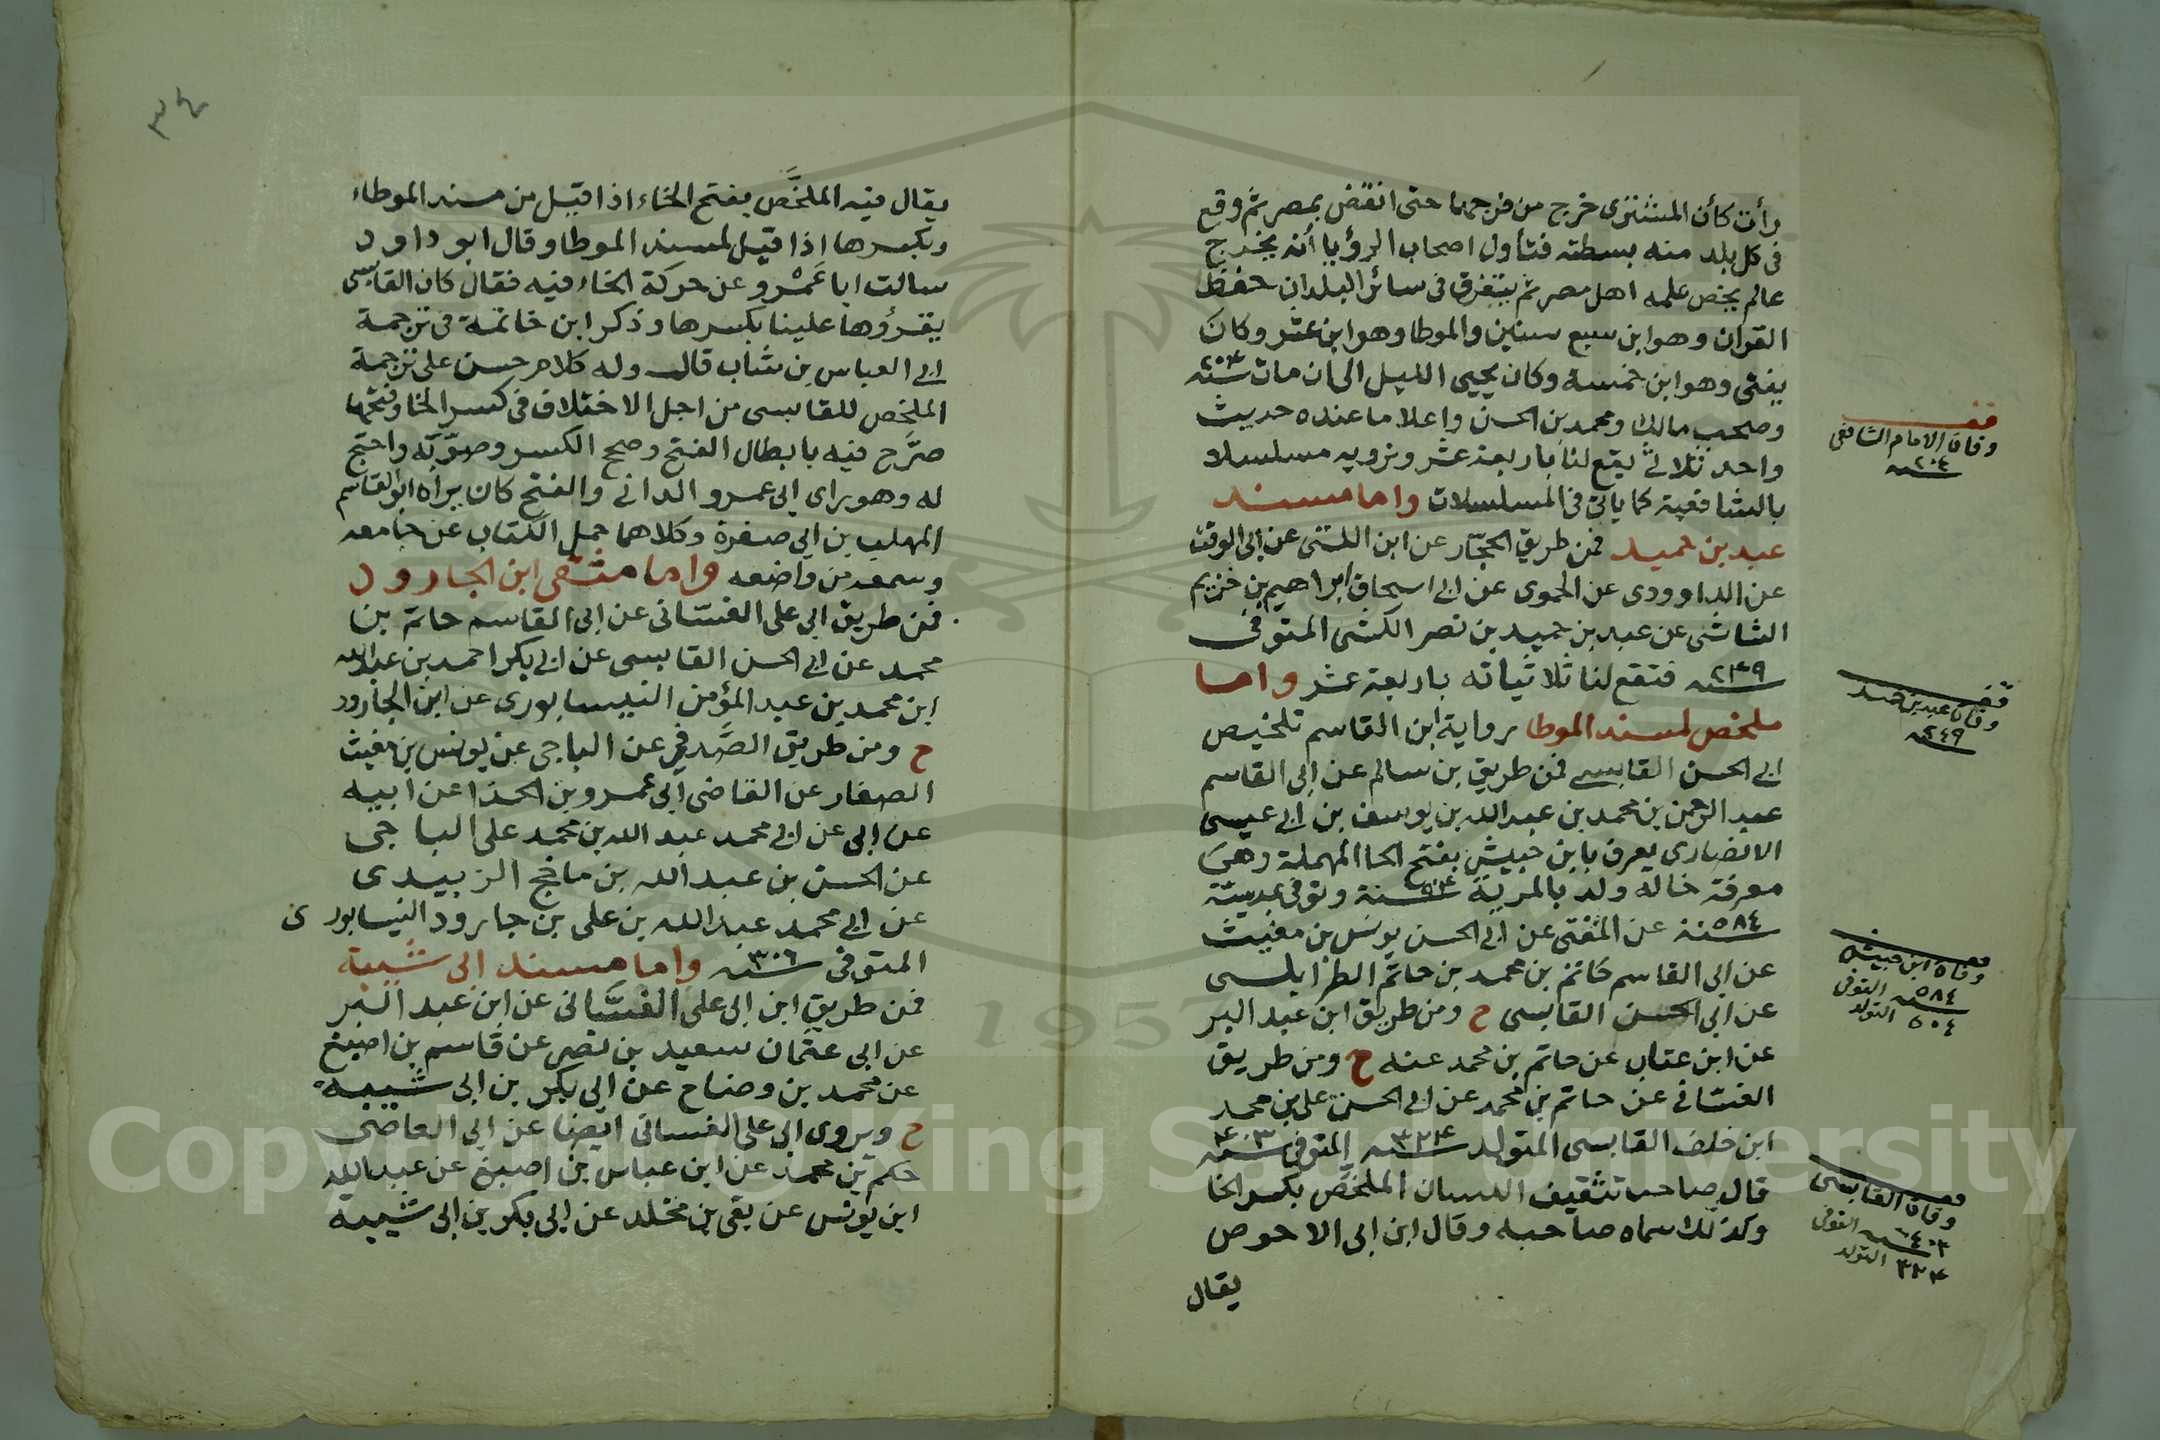 رأت كأن المشتري خرج من فرجها حتى انقض بمصر ثم وقع
في كل بلد منه بسطته فتأول اصحاب الرؤيا أنه يخرج
عالم يخص علمه اهل مصر ثم يتفرق في سائر البلدان حفظ
القران وهو ابن سبع سنين والموطا وهو ابن عشر وكان
يفتي وهو ابن خمسة وكان يحيي الليل الى ان مات سنة ٢٠٤
وصحب مالك ومحمد بن الحسن واعلا ما عنده حديث
واحد ثلاثي يقع لنا باربعة عشر ونرويه مسلسلا
بالشافعية كما ياتي في المسلسلات واما مسند
عبد بن حميد فمن طريق الحجّار عن ابن اللتي عن ابي الوقت
عن الداوودي عن الحموي عن ابي اسحاق ابراهيم بن خزيم
الشاشي عن عبد بن حميد بن نصر الكشي المتوفى
سنة ٢٤٩ فتقع لنا ثلاثياته باربعة عشر واما
ملخص لمسند الموطا برواية ابن القاسم تلخيص
ابي الحسن القابسي فمن طريق بن سالم عن ابي القاسم
عبد الرحمن بن محمد بن عبد الله بن يوسف بن ابي عيسى
الانصاري يعرف بابن حبيش بفتح الحا المهملة وهي
معرفة خاله ولد بالمرية سنة ٥٠٤ وتوفي بمرسية
سنة ٥٨٤ عن المفتي عن ابي الحسن يونس بن مغيث
عن ابي القاسم حاتم بن محمد بن حاتم الطرابلسي
عن ابي الحسن القابسي ح ومن طريق ابن عبد البر
عن ابن عتاب عن حاتم بن محمد عنه ح ومن طريق
الغسّاني عن حاتم بن محمد عن ابي الحسن علي بن محمد
ابن خلف القابسي المتولد سنة ٣٢٤ المتوفى سنة ٤٠٣
قال صاحب تثقيف اللسان الملخص بكسر الخا
وكذلك سماه صاحبه وقال ابن ابي الاحوص
يقال
وفاة الامام الشافعي
سنة ٢٠٤
وفاة عبد بن حميد
سنة ٢٤٩
وفاة ابن حبيش
سنة ٥٨٤ المتوفى
٥٠٤ التولد
وفاة القابسي
سنة ٤٠٣ المتوفى
٣٢٤ التولد
٣٤
يقال فيه الملخَّص بفتح الخاء اذا قيل من مسند الموطاء
وبكسرها اذا قيل لمسند الموطا وقال ابو داود
سالت ابا عَمْرو عن حركة الخاء فيه فقال كان القابسي
يقرؤها علينا بكسرها وذكر ابن خاتمة في ترجمة
ابي العباس بن شاب قال وله كلام حسن على ترجمة
الملخص للقابسي من اجل الاختلاف في كسر الخا وفتحها
صرَّح فيه بابطال الفتح وصحح الكسر وصوّبه واحتج
له وهو براي ابي عمرو الداني والفتح كان يراه ابو القاسم
المهلب بن ابي صفرة وكلاهما حمل الكتاب عن جامعه
وسمعه من واضعه واما منتقى ابن الجارود
فمن طريق ابي علي الغسّاني عن ابي القاسم حاتم بن
محمد عن ابي الحسن القابسي عن ابي بكر احمد بن عبدالله
ابن محمد بن عبد المؤمن النيسابوري عن ابن الجارود
ح ومن طريق الصَّدفي عن الباجي عن يونس بن مغيث
الصفار عن القاضي ابي عمرو بن الحذا عن ابيه
عن ابي عن ابي محمد عبد الله بن محمد علي الباجي
عن الحسن بن عبد الله بن مذحج الزبيدي
عن ابي محمد عبد الله بن علي بن جارود النيسابوري
المتوفى سنة ٣٠٦ واما مسند ابي شيبة
فمن طريق ابن ابي علي الغسَّاني عن ابن عبد البر
عن ابي عثمان سعيد بن نصر عن قاسم بن اصبغ
عن محمد بن وضاح عن ابي بكر بن ابي شيبة
ح ويروي ابي علي الغساني ايضا عن ابي العاصي
حكم بن محمد عن ابن عباس بن اصبغ عن عبد الله
ابن يونس عن بقي بن مخلد عن ابي بكر بن ابي شيبة
Copyright © King Saud University
1957